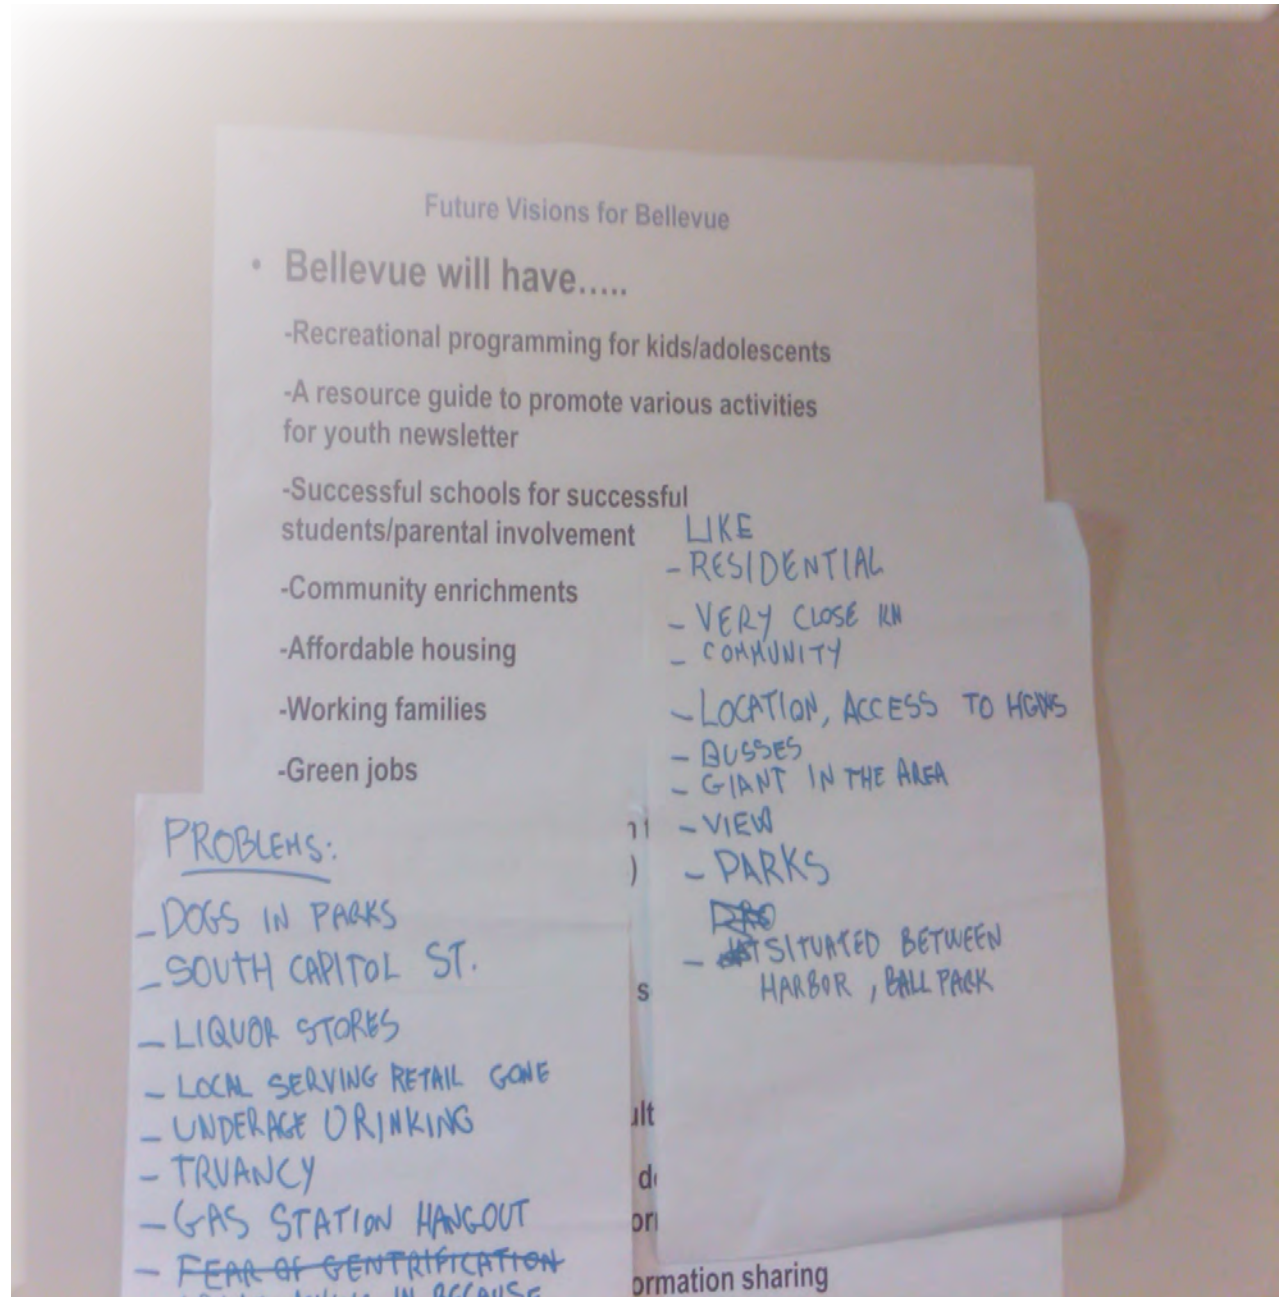 Future Visions for Bellevue
• Bellevue will have.....
-Recreational programming for kids/adolescents
-A resource guide to promote various activities
for youth newsletter
-Successful schools for successful
students/parental involvement
-Community enrichments
-Affordable housing
-Working families
-Green jobs
LIKE
- RESIDENTIAL
- VERY CLOSE KN
- COMMUNITY
- LOCATION, ACCESS TO HGWS
- BUSSES
- GIANT IN THE AREA
- VIEW
- PARKS
- SITUATED BETWEEN
HARBOR, BALL PARK
PROBLEMS:
- DOGS IN PARKS
- SOUTH CAPITOL ST.
- LIQUOR STORES
- LOCAL SERVING RETAIL GONE
- UNDERAGE DRINKING
- TRUANCY
- GAS STATION HANGOUT
- FEAR OF GENTRIFICATION
IN BECAUSE
)
s
ult
d
or
ormation sharing